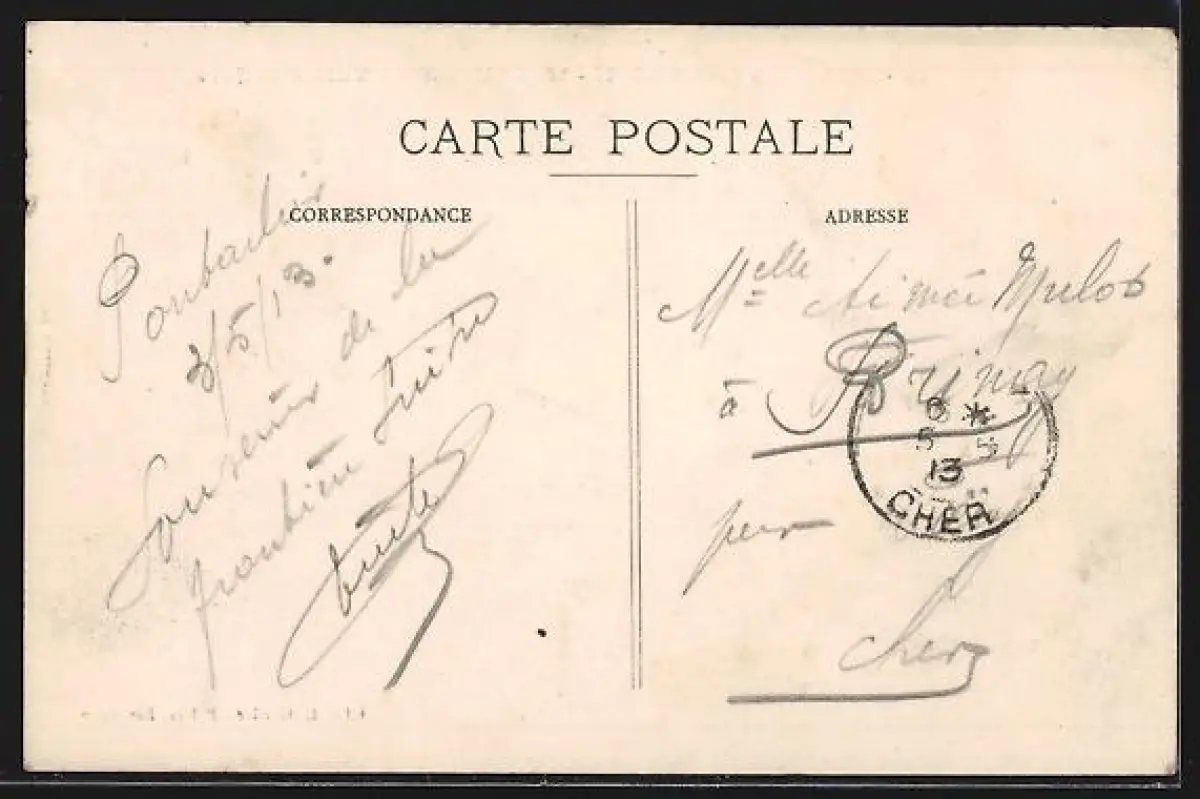 CARTE POSTALE
CORRESPONDANCE
Pontarlier
3/5/13.
Souvenir de la
frontière Suisse
ADRESSE
Melle Aimée Mulot
à Brinay
par
Cher
6 *
5 5
13
CHER